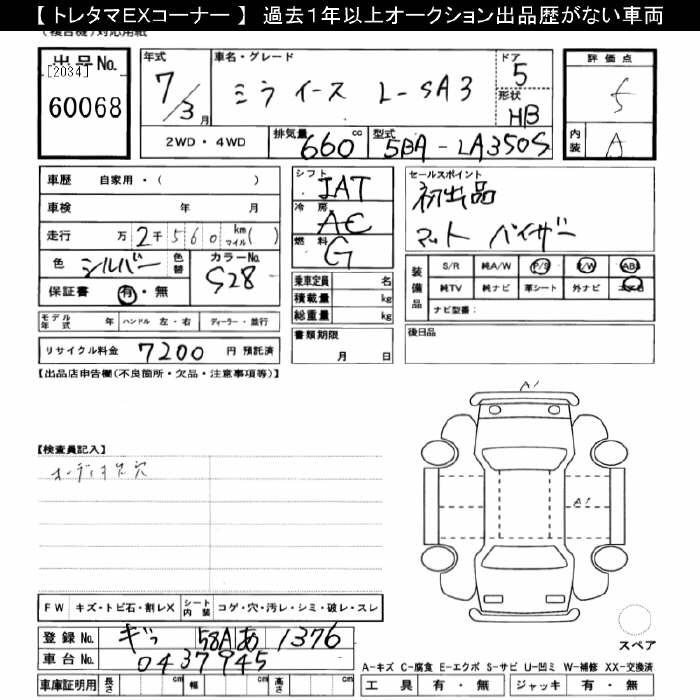 【トレタマEXコーナー】 過去1年以上オークション出品歴がない車両
(複合機)対応用紙
出品No.
[2034]
60068
年式 7/3月
車名・グレード ミライース L-SA3
ドア 5
形状 HB
評価点 5
内装 A
2WD・4WD
排気量 660 cc
型式 5BA-LA350S
車歴 自家用・( )
車検 年 月
走行 万 2千560 km マイル( )
色 シルバー 色替 カラーNo. S28
保証書 有・無
シフト IAT
冷房 AC
燃料 G
乗車定員 名
積載量 kg
総重量 kg
セールスポイント
初出品
マット バイザー
装備品 S/R 純A/W P/S P/W ABS
純TV 純ナビ 革シート 外ナビ エアB
ナビ型番:
モデル年式 年 ハンドル 左・右 ディーラー・並行
リサイクル料金 7200 円 預託済
書類期限 月 日
後日品
【出品店申告欄(不良箇所・欠品・注意事項等)】
A1
【検査員記入】
オーディオ欠穴
A1
FW キズ・トビ石・割レX シート内装 コゲ・穴・汚レ・シミ・破レ・スレ
登録No. ギフ 581 あ 1376
車台No. 0437945
スペア
A-キズ C-腐食 E-エクボ S-サビ U-凹ミ W-補修 XX-交換済
車庫証明用 長さ cm 幅 cm 高さ cm
工具 有・無 ジャッキ 有・無